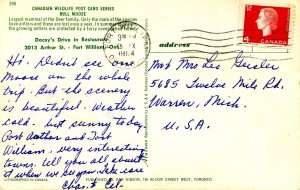 390
CANADIAN WILDLIFE POST CARD SERIES
BULL MOOSE
Largest mammal of the Deer family. Only the male of the species
and these are lost each year. In summer
the growing antlers are protected by a furry cover
Dacey's Drive in Restaurant
2013 Arthur St. - Fort William, Ont.
address
CANADA
4
PM
1964
Hi. Didn't see one
Moose on the whole
trip. But the scenery
is beautiful. Weather
cold - but sunny today.
Port Arthur and Fort
William, very interesting
towns. Tell you all about
it when we see you. Take care
Chas. & Cel.
Mr & Mrs Leo Geisler
5685 Twelve Mile Rd.
Warren, Mich.
U.S.A.
PUBLISHED BY DAN GIBSON, 128 BLOOR STREET WEST, TORONTO